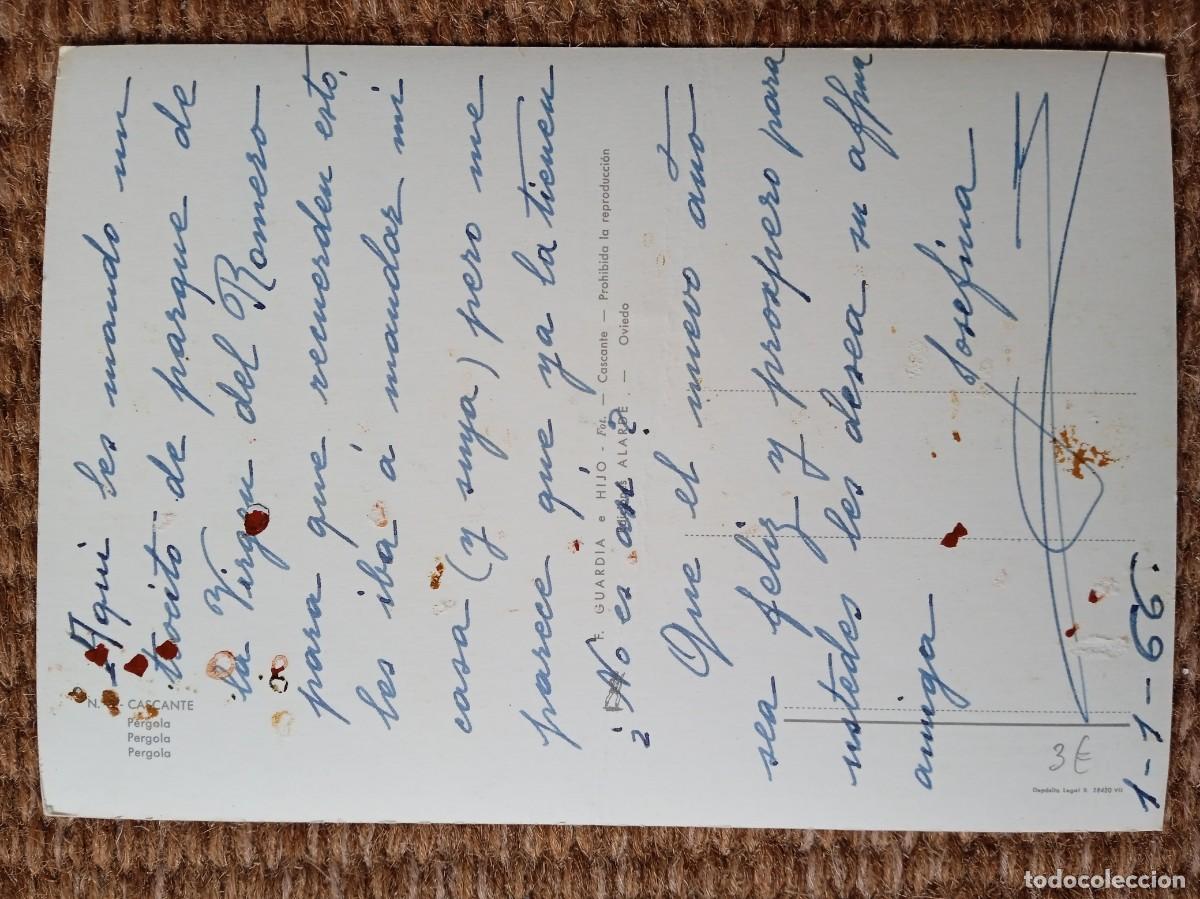 N. - CASCANTE
Pérgola
Pergola
Pergola
Aqui les mando un
trocito de parque de
la Virgen del Romero
para que recuerden esto,
les iba á mandar mi
casa (y suya) pero me
parece que ya la tienen
¿No es así?
Que el nuevo año
sea feliz y prospero para
ustedes les desea su affma
amiga Josefina
1-1-66.
F. GUARDIA e HIJO - Fot. — Cascante — Prohibida la reproducción
Ediciones ALARDE. — Oviedo
3€
todocoleccion